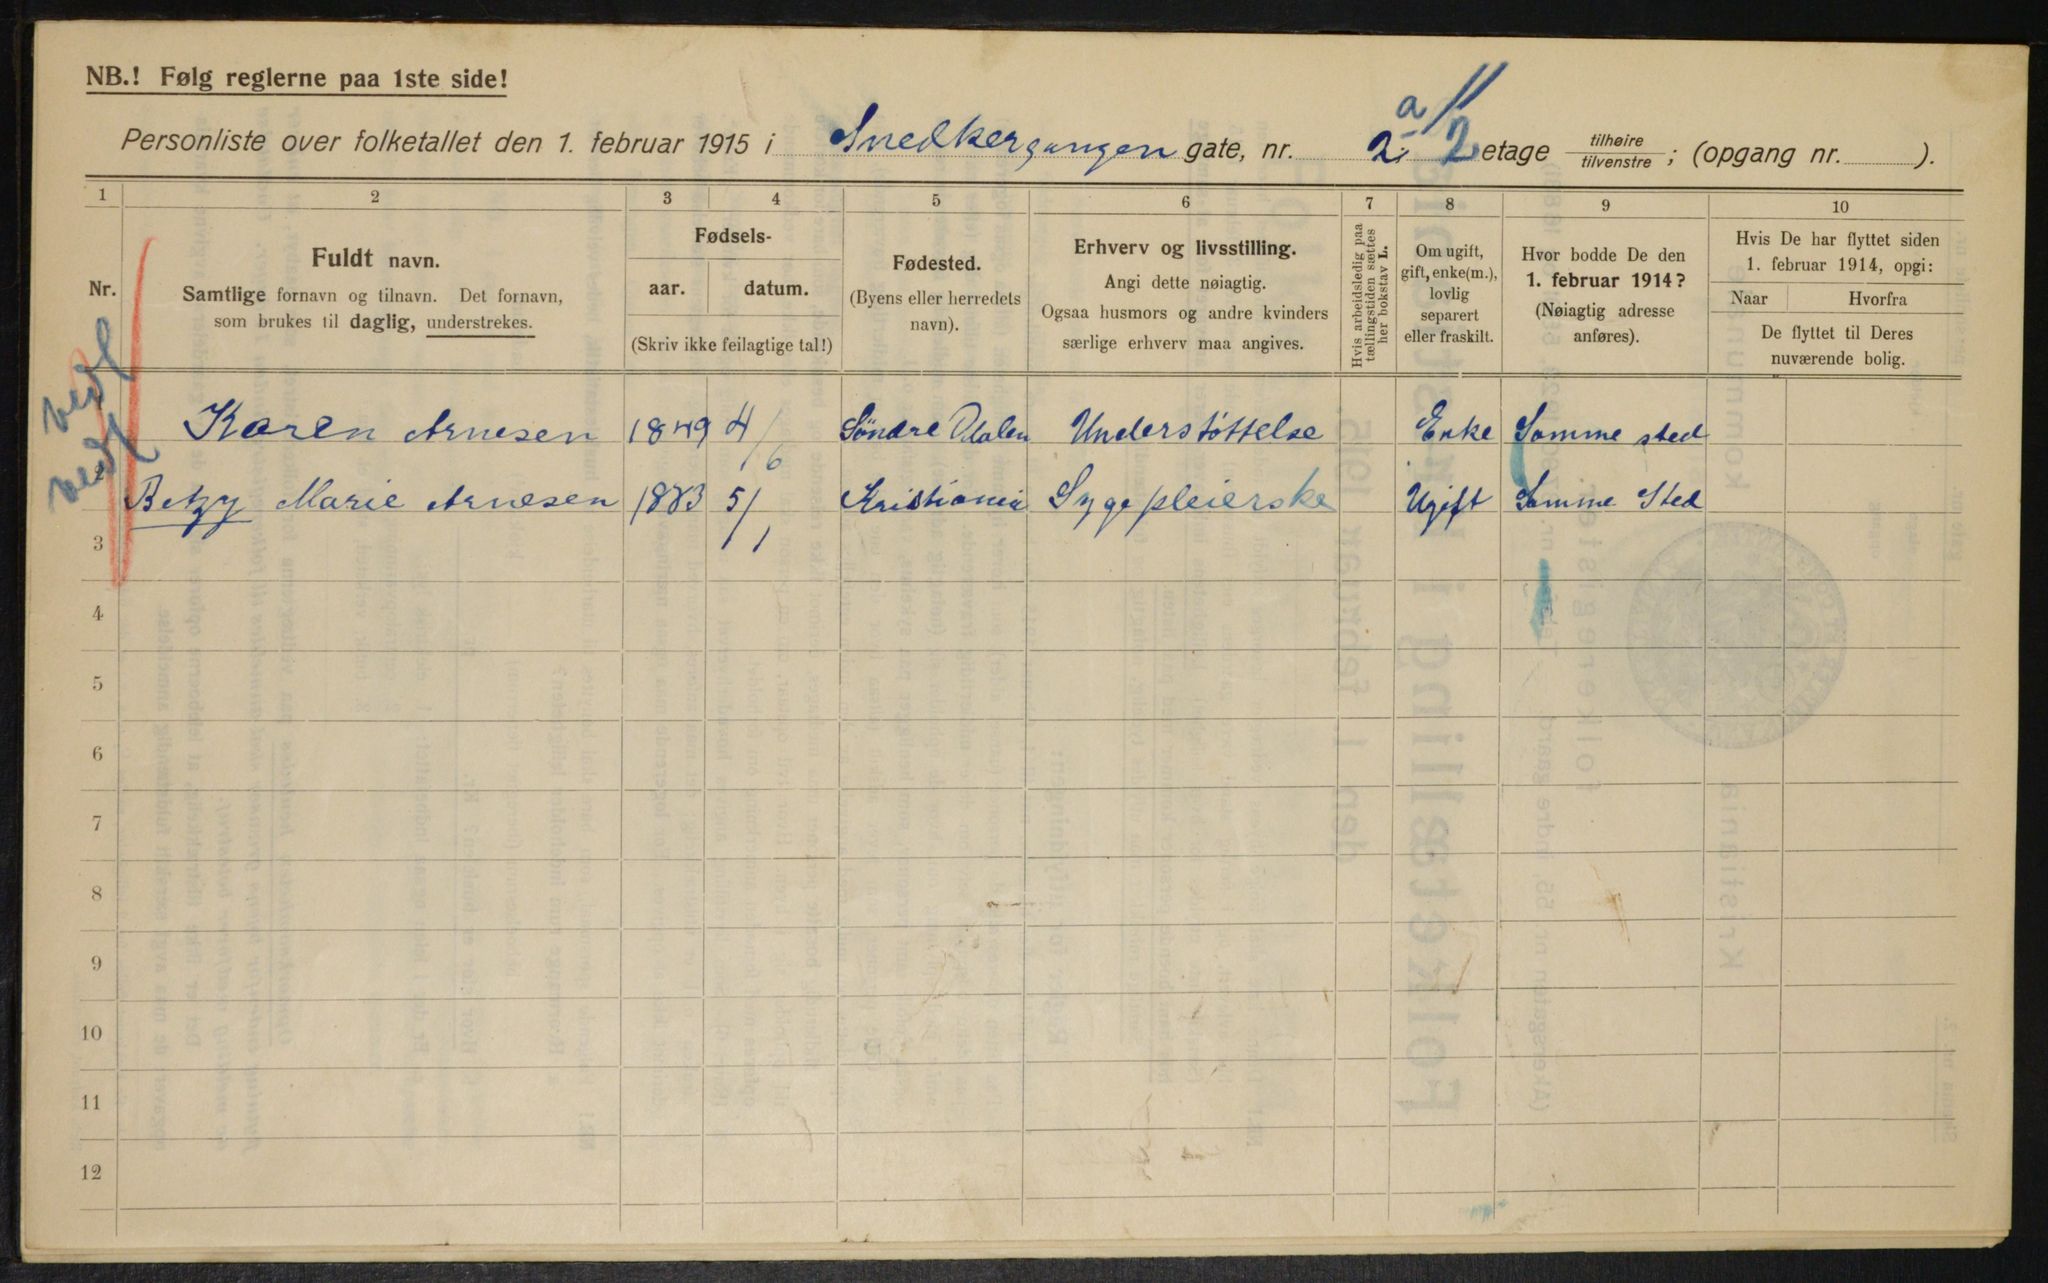 NB.! Følg reglerne paa 1ste side!
Personliste over folketallet den 1. februar 1915 i Snedkergangen gate, nr. 2a 2 etage tilhøire/tilvenstre; (opgang nr. ).
1 2 3 4 5 6 7 8 9 10
Nr.
Fuldt navn.
Samtlige fornavn og tilnavn. Det fornavn,
som brukes til daglig, understrekes.
Fødsels-
aar. datum.
(Skriv ikke feilagtige tal!)
Fødested.
(Byens eller herredets
navn).
Erhverv og livsstilling.
Angi dette nøiagtig.
Ogsaa husmors og andre kvinders
særlige erhverv maa angives.
Hvis arbeidsledig paa
tællingstiden sættes
her bokstav L.
Om ugift,
gift, enke(m.),
lovlig
separert
eller fraskilt.
Hvor bodde De den
1. februar 1914?
(Nøiagtig adresse
anføres).
Hvis De har flyttet siden
1. februar 1914, opgi:
Naar Hvorfra
De flyttet til Deres
nuværende bolig.
Karen Arnesen 1849 4/6 Söndre Odalen Understøttelse Enke Samme sted
2 Betzy Marie Arnesen 1883 5/1 Kristiania Sygepleierske Ugift Samme Sted
3
4
5
6
7
8
9
10
11
12